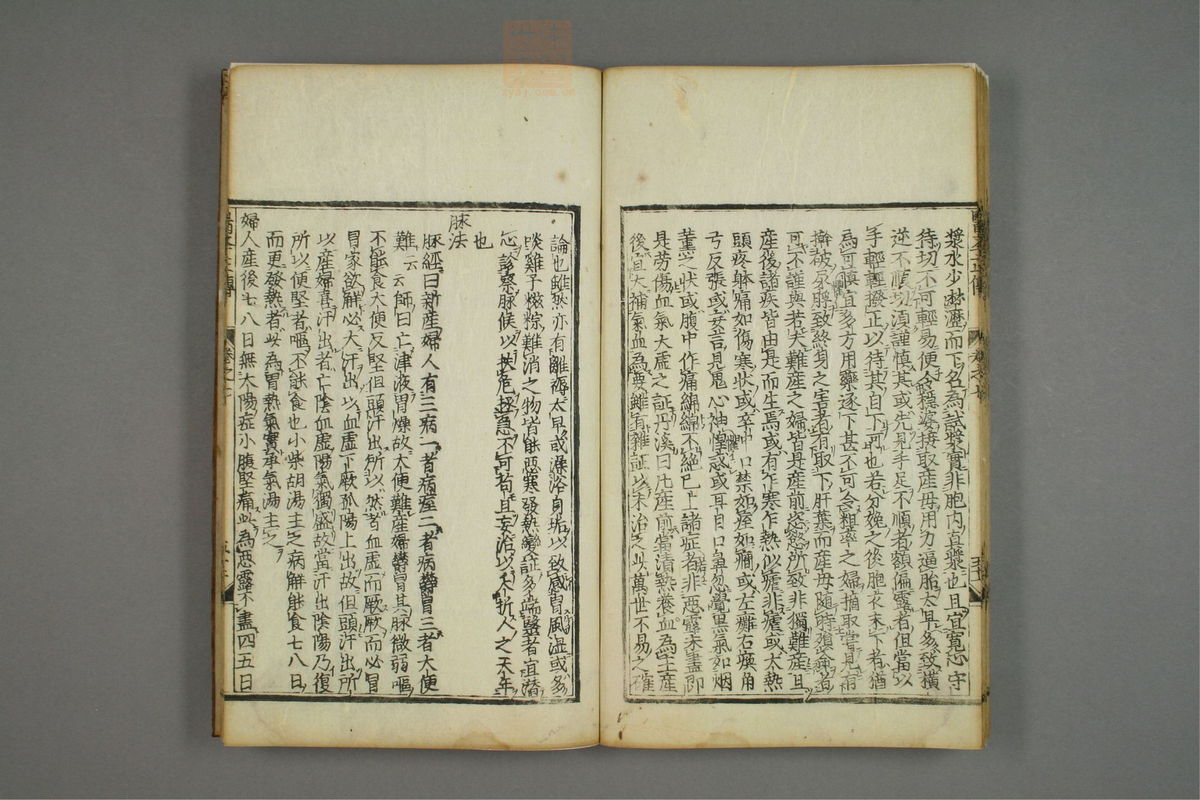 漿水少許瀝而下名為試漿實非胞内真漿也且宜寬心守
待切不可輕易便令穏婆接取産母用力逼胎太早多致橫
逆不順切須謹慎其或先見手足不順者額偏露者但當以
手輕輕撥正以待其自下可也若分娩之後胞衣未下者猶
為可慎宜多方用藥逐下甚不可令粗率之婦摘取嘗見有
擠破尿脬致終身之害者有取下肝葉而産母随時殞命者
可不謹與若夫難産之婦皆是産前恣慾所致非獨難産且
産後諸疾皆由是而生焉或有乍寒乍熱似瘧非瘧或大熱
頭疼躰痛如傷寒狀或卒中口禁如痓如癎或左癱右瘓角
弓反張或妄言見鬼心神惶惑或耳目口鼻忽覺黒氣如烟
薫之狀或腹中作痛綿綿不絶已上諸症者非悪露未盡即
是勞傷血氣大虚之証丹溪曰凡産前當清熱養血為主産
後宜大補氣血為要雖有雜証以末治之此萬世不易之確
論也雖然亦有離褥太早或澡浴身垢以致感冒風湿或多
啖雞子糍粽難消之物皆能悪寒發熱變証多端醫者宜潜
心診察脉候以扶危拯急不可苟且妄治以夭折人之天年
也
脉法
脉經曰新産婦人有三病一者病痓二者病鬱冒三者大便
難云云師曰亡津液胃燥故大便難産婦鬱冒其脉微弱嘔
不能食大便反堅但頭汗出所以然者血虚而厥厥而必冒
冒家欲解必大汗出以血虚下厥孤陽上出故但頭汗出所
以産婦喜汗出者亡陰血虚陽氣獨盛故當汗出陰陽乃復
所以便堅者嘔不能食也小柴胡湯主之病解能食七八日
而更發熱者此為胃熱氣實承氣湯主之
婦人産後七八日無太陽症小腹堅痛此為悪露不盡四五日